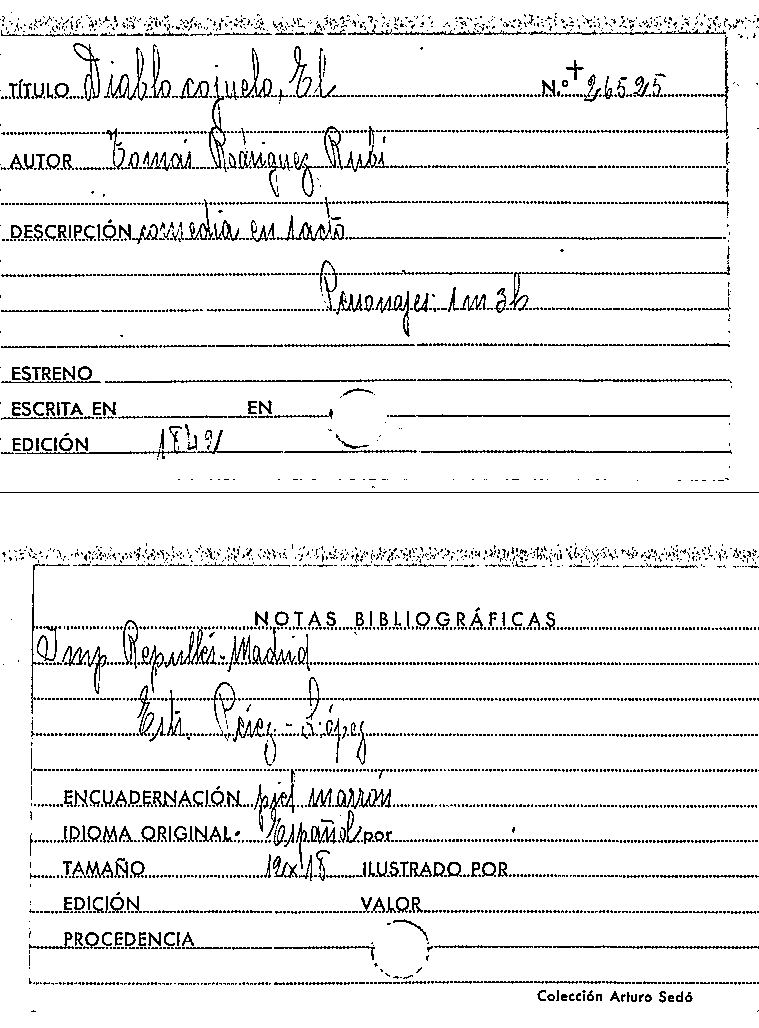 TÍTULO Diablo cojuelo, El N.º + 26525
AUTOR Tomás Rodriguez Rubi
DESCRIPCIÓN comedia en 1 acto
Personajes: 1m 3h
ESTRENO
ESCRITA EN EN
EDICIÓN 1842
NOTAS BIBLIOGRÁFICAS
Imp Repullés. Madrid
Edit. Pérez - López
ENCUADERNACIÓN piel marrón
IDIOMA ORIGINAL. Español por
TAMAÑO 12x18 ILUSTRADO POR
EDICIÓN VALOR
PROCEDENCIA
Colección Arturo Sedó